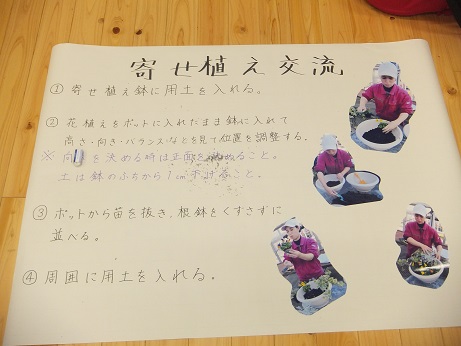 寄せ植え交流
① 寄せ植え鉢に用土を入れる。
② 花植えをポットに入れたまま鉢に入れて
高さ・向き・バランスなどを見て位置を調整する。
※ 向 を決める時は正面を ねること。
土は鉢のふちから1cm下げること。
③ ポットから苗を抜き、根鉢をくずさずに
並べる。
④ 周囲に用土を入れる。